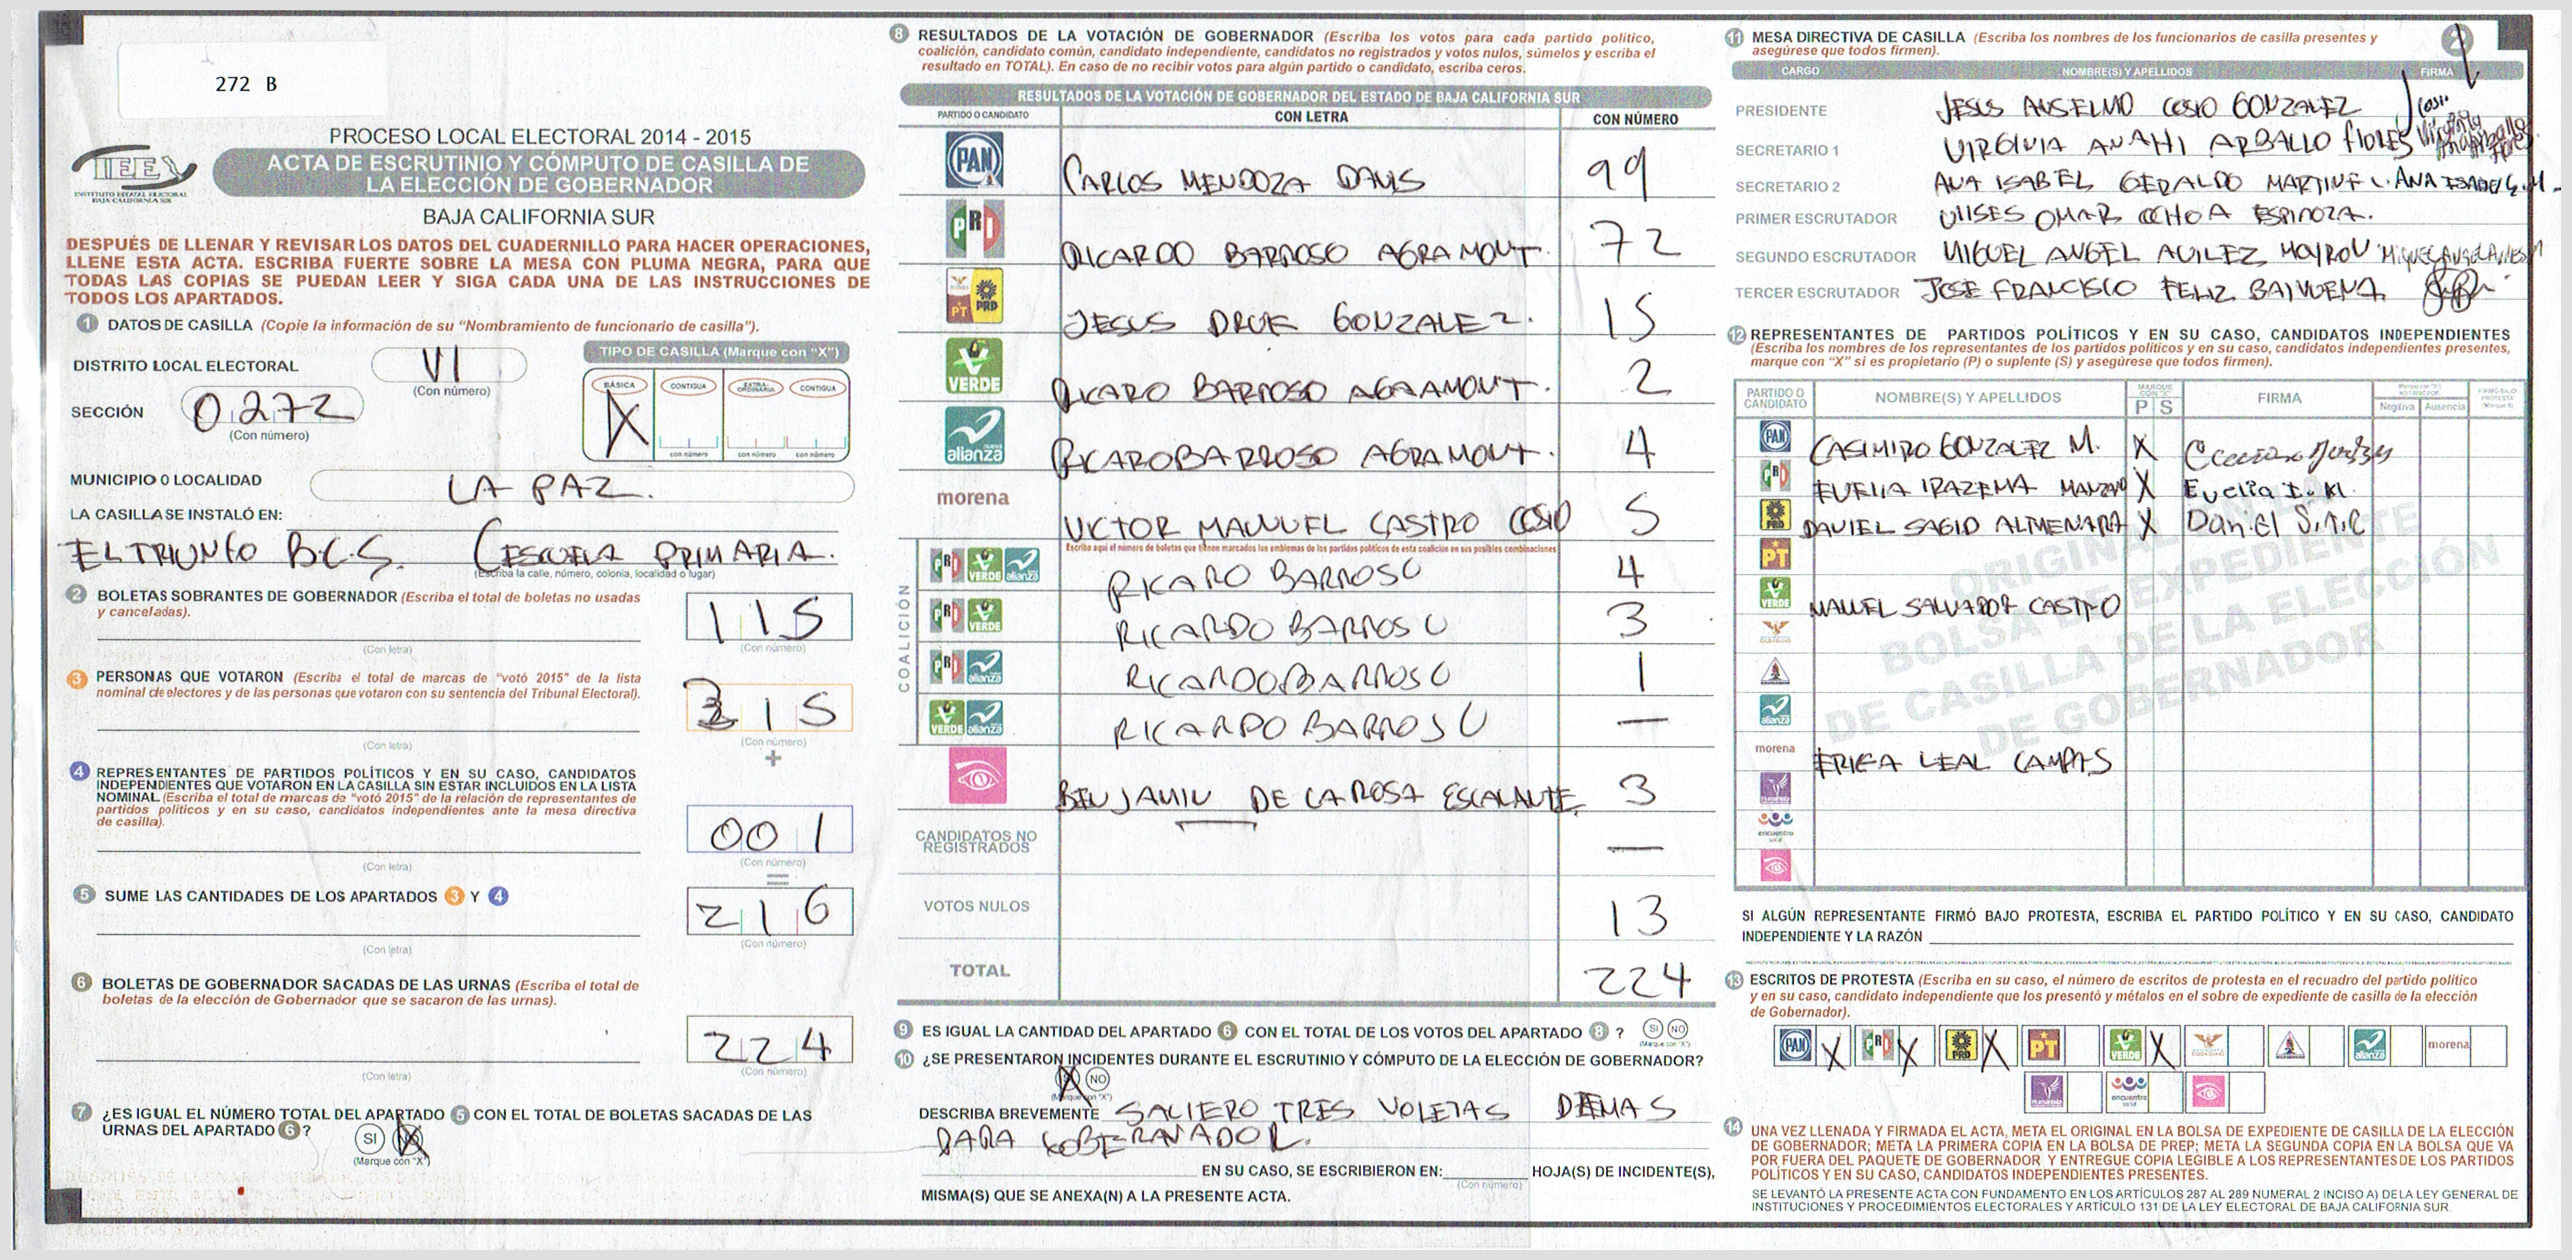 272 B
PROCESO LOCAL ELECTORAL 2014 - 2015
IEE
INSTITUTO ESTATAL ELECTORAL
BAJA CALIFORNIA SUR
ACTA DE ESCRUTINIO Y CÓMPUTO DE CASILLA DE
LA ELECCIÓN DE GOBERNADOR
BAJA CALIFORNIA SUR
DESPUÉS DE LLENAR Y REVISAR LOS DATOS DEL CUADERNILLO PARA HACER OPERACIONES,
LLENE ESTA ACTA. ESCRIBA FUERTE SOBRE LA MESA CON PLUMA NEGRA, PARA QUE
TODAS LAS COPIAS SE PUEDAN LEER Y SIGA CADA UNA DE LAS INSTRUCCIONES DE
TODOS LOS APARTADOS.
1 DATOS DE CASILLA (Copie la información de su "Nombramiento de funcionario de casilla").
DISTRITO LOCAL ELECTORAL VI
(Con número)
TIPO DE CASILLA (Marque con "X")
BÁSICA CONTIGUA EXTRAORDINARIA CONTIGUA
X
con número con número con número
SECCIÓN 0272
(Con número)
MUNICIPIO O LOCALIDAD LA PAZ.
LA CASILLA SE INSTALÓ EN:
EL TRIUNFO B.C.S. (ESCUELA PRIMARIA.
(Escriba la calle, número, colonia, localidad o lugar)
2 BOLETAS SOBRANTES DE GOBERNADOR (Escriba el total de boletas no usadas
y canceladas).
115
(Con letra) (Con número)
3 PERSONAS QUE VOTARON (Escriba el total de marcas de "votó 2015" de la lista
nominal de electores y de las personas que votaron con su sentencia del Tribunal Electoral).
215
(Con letra) (Con número)
+
4 REPRESENTANTES DE PARTIDOS POLÍTICOS Y EN SU CASO, CANDIDATOS
INDEPENDIENTES QUE VOTARON EN LA CASILLA SIN ESTAR INCLUIDOS EN LA LISTA
NOMINAL (Escriba el total de marcas de "votó 2015" de la relación de representantes de
partidos políticos y en su caso, candidatos independientes ante la mesa directiva
de casilla).
001
(Con letra) (Con número)
=
5 SUME LAS CANTIDADES DE LOS APARTADOS 3 Y 4
216
(Con letra) (Con número)
6 BOLETAS DE GOBERNADOR SACADAS DE LAS URNAS (Escriba el total de
boletas de la elección de Gobernador que se sacaron de las urnas).
224
(Con letra) (Con número)
7 ¿ES IGUAL EL NÚMERO TOTAL DEL APARTADO 5 CON EL TOTAL DE BOLETAS SACADAS DE LAS
URNAS DEL APARTADO 6 ?
SI NO X
(Marque con "X")
8 RESULTADOS DE LA VOTACIÓN DE GOBERNADOR (Escriba los votos para cada partido político,
coalición, candidato común, candidato independiente, candidatos no registrados y votos nulos, súmelos y escriba el
resultado en TOTAL). En caso de no recibir votos para algún partido o candidato, escriba ceros.
RESULTADOS DE LA VOTACIÓN DE GOBERNADOR DEL ESTADO DE BAJA CALIFORNIA SUR
PARTIDO O CANDIDATO CON LETRA CON NÚMERO
PAN CARLOS MENDOZA DAVIS 99
PRI RICARDO BARROSO AGRAMONT. 72
PT PRD JESUS DRUK GONZALEZ. 15
VERDE RICARO BARROSO AGRAMONT. 2
alianza RICARO BARROSO AGRAMONT. 4
morena VICTOR MANUEL CASTRO COSIO 5
Escriba aquí el número de boletas que tienen marcados los emblemas de los partidos políticos de esta coalición en sus posibles combinaciones
COALICIÓN
PRI VERDE alianza RICARO BARROSO 4
PRI VERDE RICARDO BARROSO 3
PRI alianza RICARDO BARROSO 1
VERDE alianza RICARDO BARROSO —
BENJAMIN DE LA ROSA ESCALANTE 3
CANDIDATOS NO
REGISTRADOS —
VOTOS NULOS 13
TOTAL 224
9 ES IGUAL LA CANTIDAD DEL APARTADO 6 CON EL TOTAL DE LOS VOTOS DEL APARTADO 8 ? SI NO
(Marque con "X")
10 ¿SE PRESENTARON INCIDENTES DURANTE EL ESCRUTINIO Y CÓMPUTO DE LA ELECCIÓN DE GOBERNADOR?
X NO
(Marque con "X")
DESCRIBA BREVEMENTE SALIERO TRES VOLETAS DEMAS
PARA GOBERANADOR.
EN SU CASO, SE ESCRIBIERON EN: HOJA(S) DE INCIDENTE(S),
(Con número)
MISMA(S) QUE SE ANEXA(N) A LA PRESENTE ACTA.
2
11 MESA DIRECTIVA DE CASILLA (Escriba los nombres de los funcionarios de casilla presentes y
asegúrese que todos firmen).
CARGO NOMBRE(S) Y APELLIDOS FIRMA
PRESIDENTE JESUS ANSELMO COSIO GONZALEZ
SECRETARIO 1 VIRGINIA ANAHI ARBALLO FLORES
SECRETARIO 2 ANA ISABEL GERALDO MARTINEZ. ANA ISABEL G. M.
PRIMER ESCRUTADOR ULISES OMAR OCHOA ESPINOZA.
SEGUNDO ESCRUTADOR MIGUEL ANGEL AVILEZ MOYRON
TERCER ESCRUTADOR JOSE FRANCISCO FELIZ BALVUENA
12 REPRESENTANTES DE PARTIDOS POLÍTICOS Y EN SU CASO, CANDIDATOS INDEPENDIENTES
(Escriba los nombres de los representantes de los partidos políticos y en su caso, candidatos independientes presentes,
marque con "X" si es propietario (P) o suplente (S) y asegúrese que todos firmen).
PARTIDO O
CANDIDATO NOMBRE(S) Y APELLIDOS P S FIRMA Negativa Ausencia
PAN CASIMIRO GONZALEZ M. X
PRI EVELIA IRAZEMA MANZANO X Evelia I. M.
PRD DANIEL SAGID ALMENARA X Daniel
PT
VERDE MANUEL SALVADOR CASTRO
alianza
morena ERIKA LEAL CAMPAS
encuentro
ORIGINAL
BOLSA DE EXPEDIENTE
DE CASILLA DE LA ELECCIÓN
DE GOBERNADOR
SI ALGÚN REPRESENTANTE FIRMÓ BAJO PROTESTA, ESCRIBA EL PARTIDO POLÍTICO Y EN SU CASO, CANDIDATO
INDEPENDIENTE Y LA RAZÓN
13 ESCRITOS DE PROTESTA (Escriba en su caso, el número de escritos de protesta en el recuadro del partido político
y en su caso, candidato independiente que los presentó y métalos en el sobre de expediente de casilla de la elección
de Gobernador).
PAN X PRI X PRD X PT VERDE X alianza morena
encuentro
14 UNA VEZ LLENADA Y FIRMADA EL ACTA, META EL ORIGINAL EN LA BOLSA DE EXPEDIENTE DE CASILLA DE LA ELECCIÓN
DE GOBERNADOR; META LA PRIMERA COPIA EN LA BOLSA DE PREP; META LA SEGUNDA COPIA EN LA BOLSA QUE VA
POR FUERA DEL PAQUETE DE GOBERNADOR Y ENTREGUE COPIA LEGIBLE A LOS REPRESENTANTES DE LOS PARTIDOS
POLÍTICOS Y EN SU CASO, CANDIDATOS INDEPENDIENTES PRESENTES.
SE LEVANTÓ LA PRESENTE ACTA CON FUNDAMENTO EN LOS ARTÍCULOS 287 AL 289 NUMERAL 2 INCISO A) DE LA LEY GENERAL DE
INSTITUCIONES Y PROCEDIMIENTOS ELECTORALES Y ARTÍCULO 131 DE LA LEY ELECTORAL DE BAJA CALIFORNIA SUR.